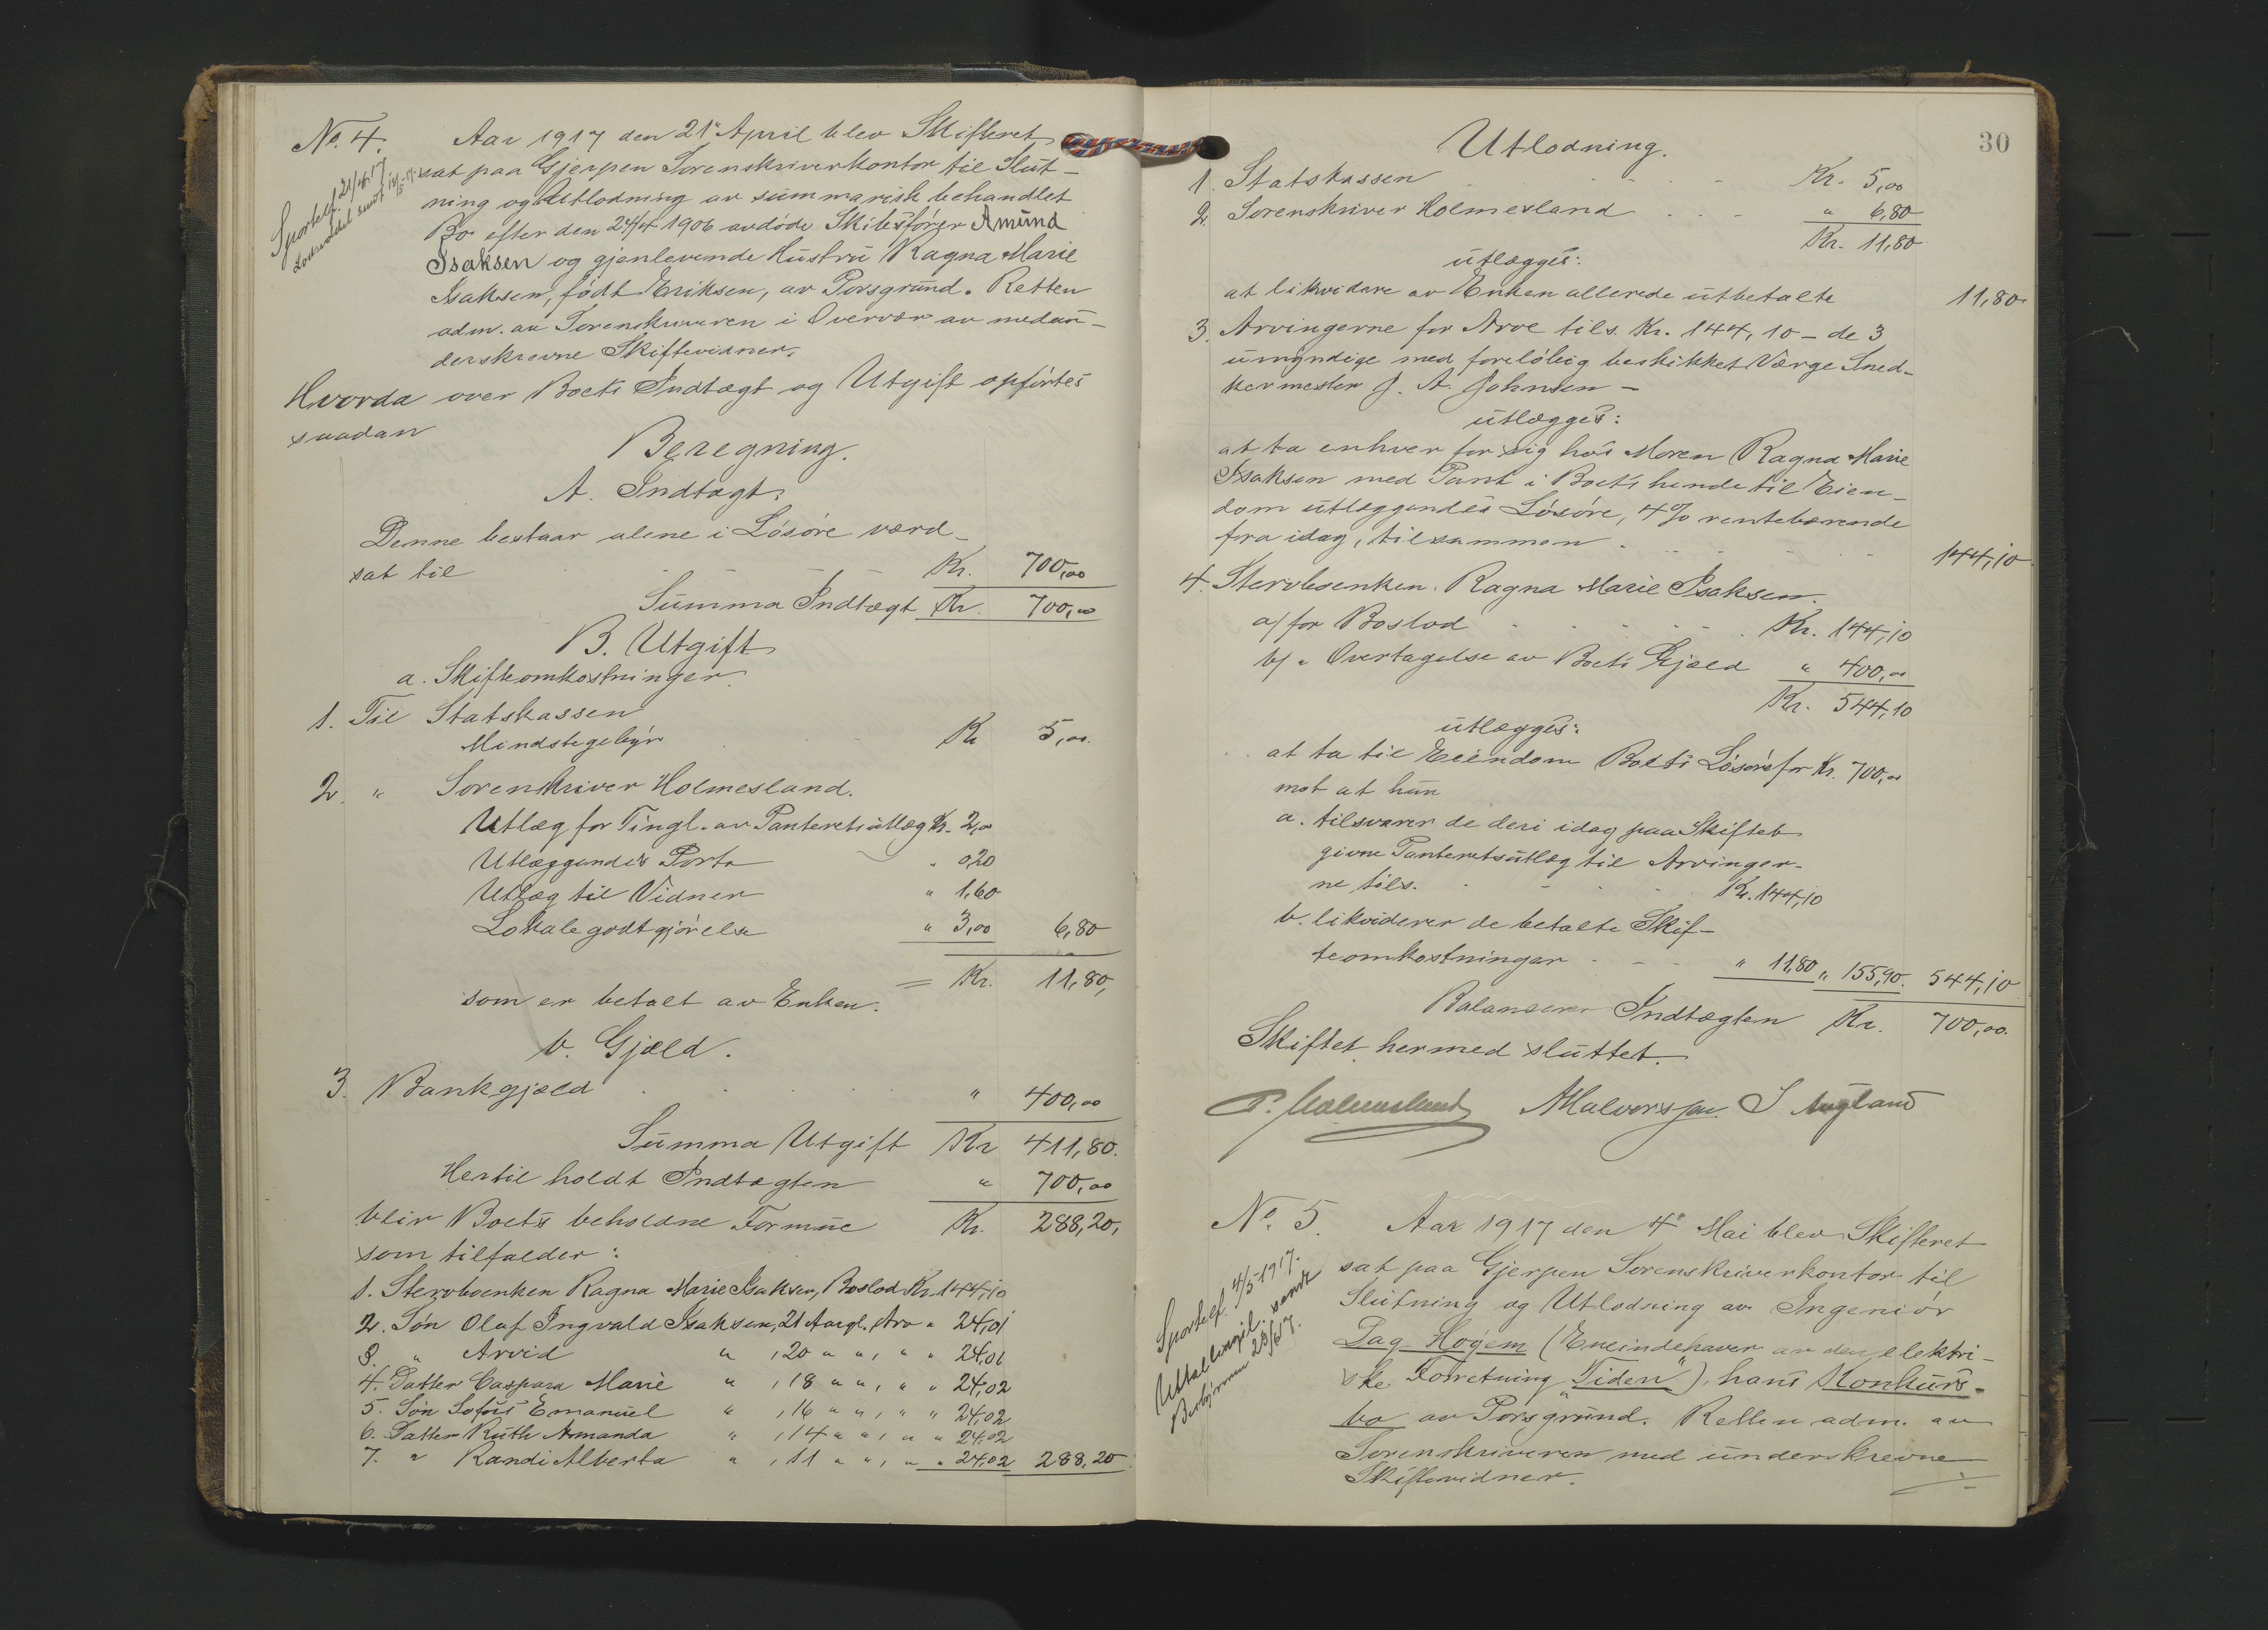 No. 4.
Sportelf. 21/4 17
Aar 1917 den 21' April blev Skifteret
sat paa Gjerpen Sorenskriverkontor til Slut-
ning og Utlodning av summarisk behandlet
Bo efter den 24/4 1906 avdöde Skibsförer Amund
Isaksen og gjenlevende Hustru Ragna Marie
Isaksen, födt Eriksen, av Porsgrund. Retten
adm. av Sorenskriveren i Overvær av medun-
derskrevne Skiftevidner.
Hvorda over Boets Indtægt og Utgift opförtes
saadan
Beregning.
A. Indtægt.
Denne bestaar alene i Lösöre værd-
sat til Kr. 700,00
Summa Indtægt Kr. 700,00
B. Utgift
a. Skifteomkostninger.
1. Til Statskassen
Mindstegebyr Kr 5,00.
2. " Sorenskriver Holmesland.
Utlæg for Tingl. av Panteretsutlæg Kr. 2,00
Utlæggendes Porto " 0,20
Utlæg til Vidner " 1,60
Lokalegodtgjörelse " 3,00 6,80
= Kr. 11,80,
som er betalt av Enken.
b. Gjæld.
3. Bankgjæld " 400,00
Summa Utgift Kr 411,80.
Hertil holdt Indtægten " 700,00
blir Boets beholdne Formue Kr. 288,20,
som tilfalder:
1. Stervboenken Ragna Marie Isaksen, Boslod Kr. 144,10
2. Sön Olaf Ingvald Isaksen, 21 Aar gl. Arv " 24,01
3. " Arvid " , 20 " ", " " 24,01
4. Datter Caspara Marie " , 18 " ", " " 24,02
5. Sön Sofus Emanuel " , 16 " ", " " 24,02
6. Datter Ruth Amanda " , 14 " ", " " 24,02
7. " Randi Alberta " , 11 " ", " " 24,02 288,20
30
Utlodning.
1. Statskassen Kr. 5,00
2. Sorenskriver Holmesland " 6,80
Kr. 11,80
utlægges:
at likvidere av Enken allerede utbetalte 11,80
3. Arvingerne for Arv tils. Kr. 144,10 - de 3
umyndige med forelöbig beskikket Værge Sned-
kermester J. A. Johnsen -
utlægges:
at ta enhver for sig hos Moren Ragna Marie
Isaksen med Pant i Boets hende til Eien-
dom utlæggendes Lösöre, 4% rentebærende
fra idag, tilsammen 144,10
4. Stervboenken Ragna Marie Isaksen.
a/ for Boslod Kr. 144,10
b/ " Overtagelse av Boets Gjæld " 400,00
Kr. 544,10
utlægges:
at ta til Eiendom Boets Lösöre for Kr. 700,00
mot at hun
a. tilsvarer de deri idag paa Skiftet
givne Panteretsutlæg til Arvinger-
ne tils. Kr. 144,10
b. likviderer de betalte Skif-
teomkostninger " 11,80 " 155,90. 544,10
Balancerer Indtægten Kr. 700,00.
Skiftet hermed sluttet.
P. Holmesland AHalvorsen S Augland
No. 5.
Sportelf. 4/5 1917.
Aar 1917 den 4' Mai blev Skifteret
sat paa Gjerpen Sorenskriverkontor til
Slutning og Utlodning av Ingeniör
Dag Höyem (Eneindehaver av den elektri-
ske Forretning "Tiden"), hans Konkurs-
bo av Porsgrund. Retten adm. av
Sorenskriveren med underskrevne
Skiftevidner.